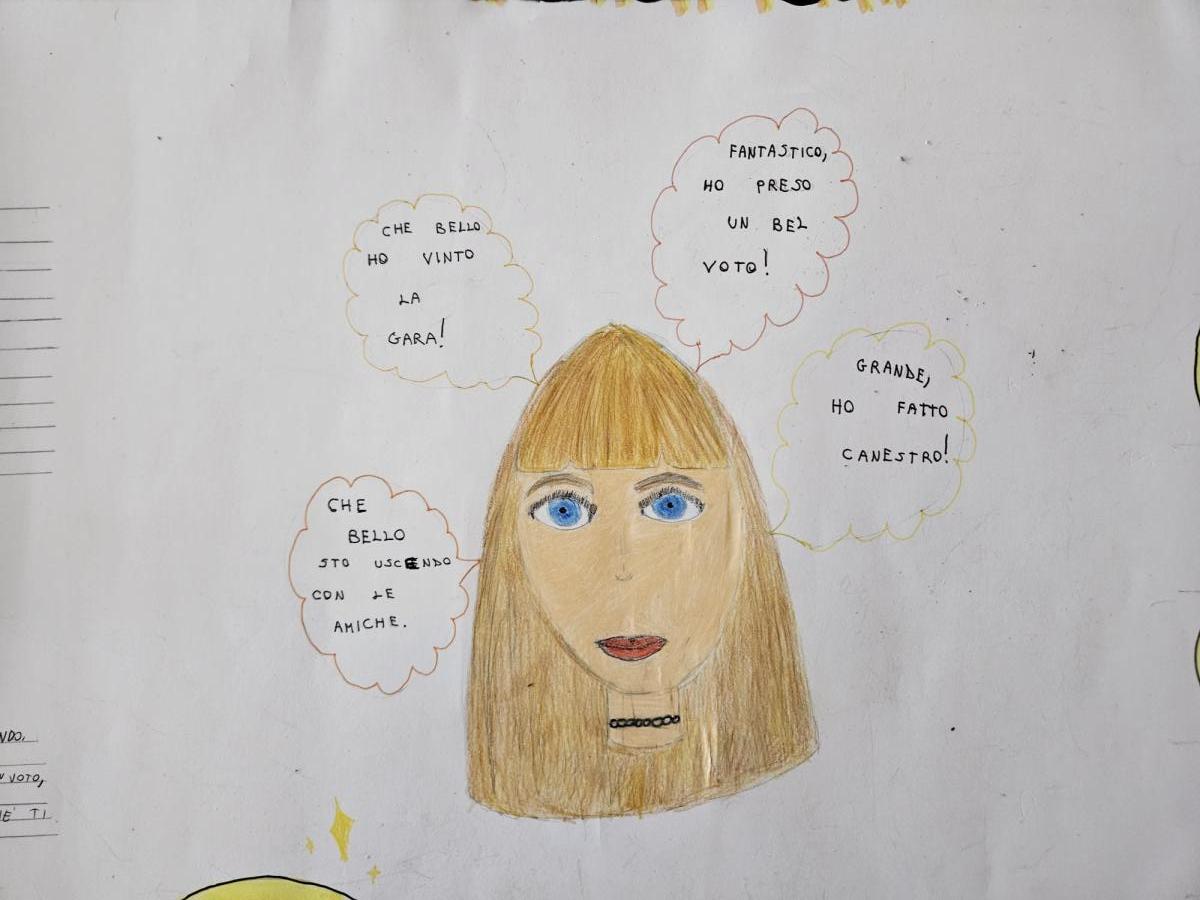 FANTASTICO,
HO PRESO
UN BEL
VOTO!
CHE BELLO
HO VINTO
LA
GARA!
GRANDE,
HO FATTO
CANESTRO!
CHE
BELLO
STO USCENDO
CON LE
AMICHE.
VOTO,
TI